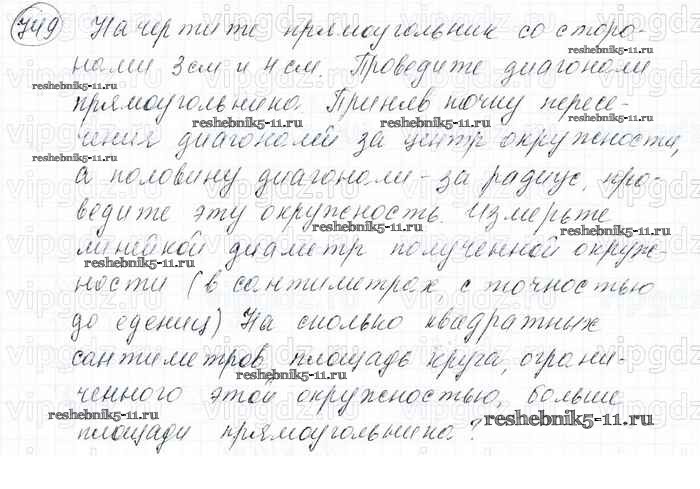 749 Начертите прямоугольник со сторо-
нами 3 см и 4 см. Проведите диагонали
прямоугольника. Приняв точку пересе-
чения диагоналей за центр окружности,
а половину диагонали - за радиус, про-
ведите эту окружность. Измерьте
линейкой диаметр полученной окруж-
ности (в сантиметрах, с точностью
до едениц) На сколько квадратных
сантиметров площадь круга, ограни-
ченного этой окружностью, больше
площади прямоугольника?
reshebnik5-11.ru
reshebnik5-11.ru
reshebnik5-11.ru
reshebnik5-11.ru
reshebnik5-11.ru
reshebnik5-11.ru
reshebnik5-11.ru
reshebnik5-11.ru
reshebnik5-11.ru
reshebnik5-11.ru
reshebnik5-11.ru
reshebnik5-11.ru